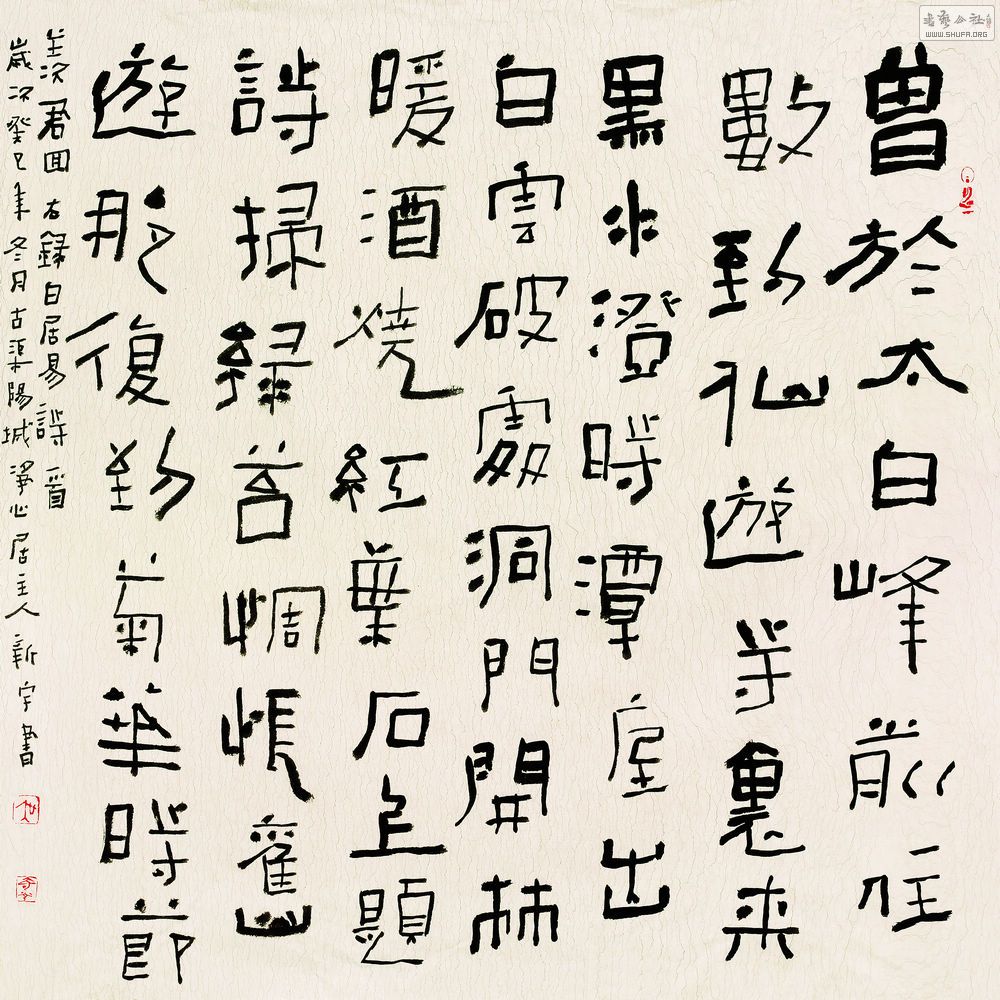 曾於太白峰前住
數到仙遊寺裏來
黑水澄時潭底出
白雲破處洞門開林
暖酒燒紅葉石上題
詩掃綠苔惆悵舊
遊那復到菊華時節
羨君回右錄白居易詩一首
歲次癸巳年冬月古渠陽城淨心居主人新宇書
書藝公社
WWW.SHUFA.ORG